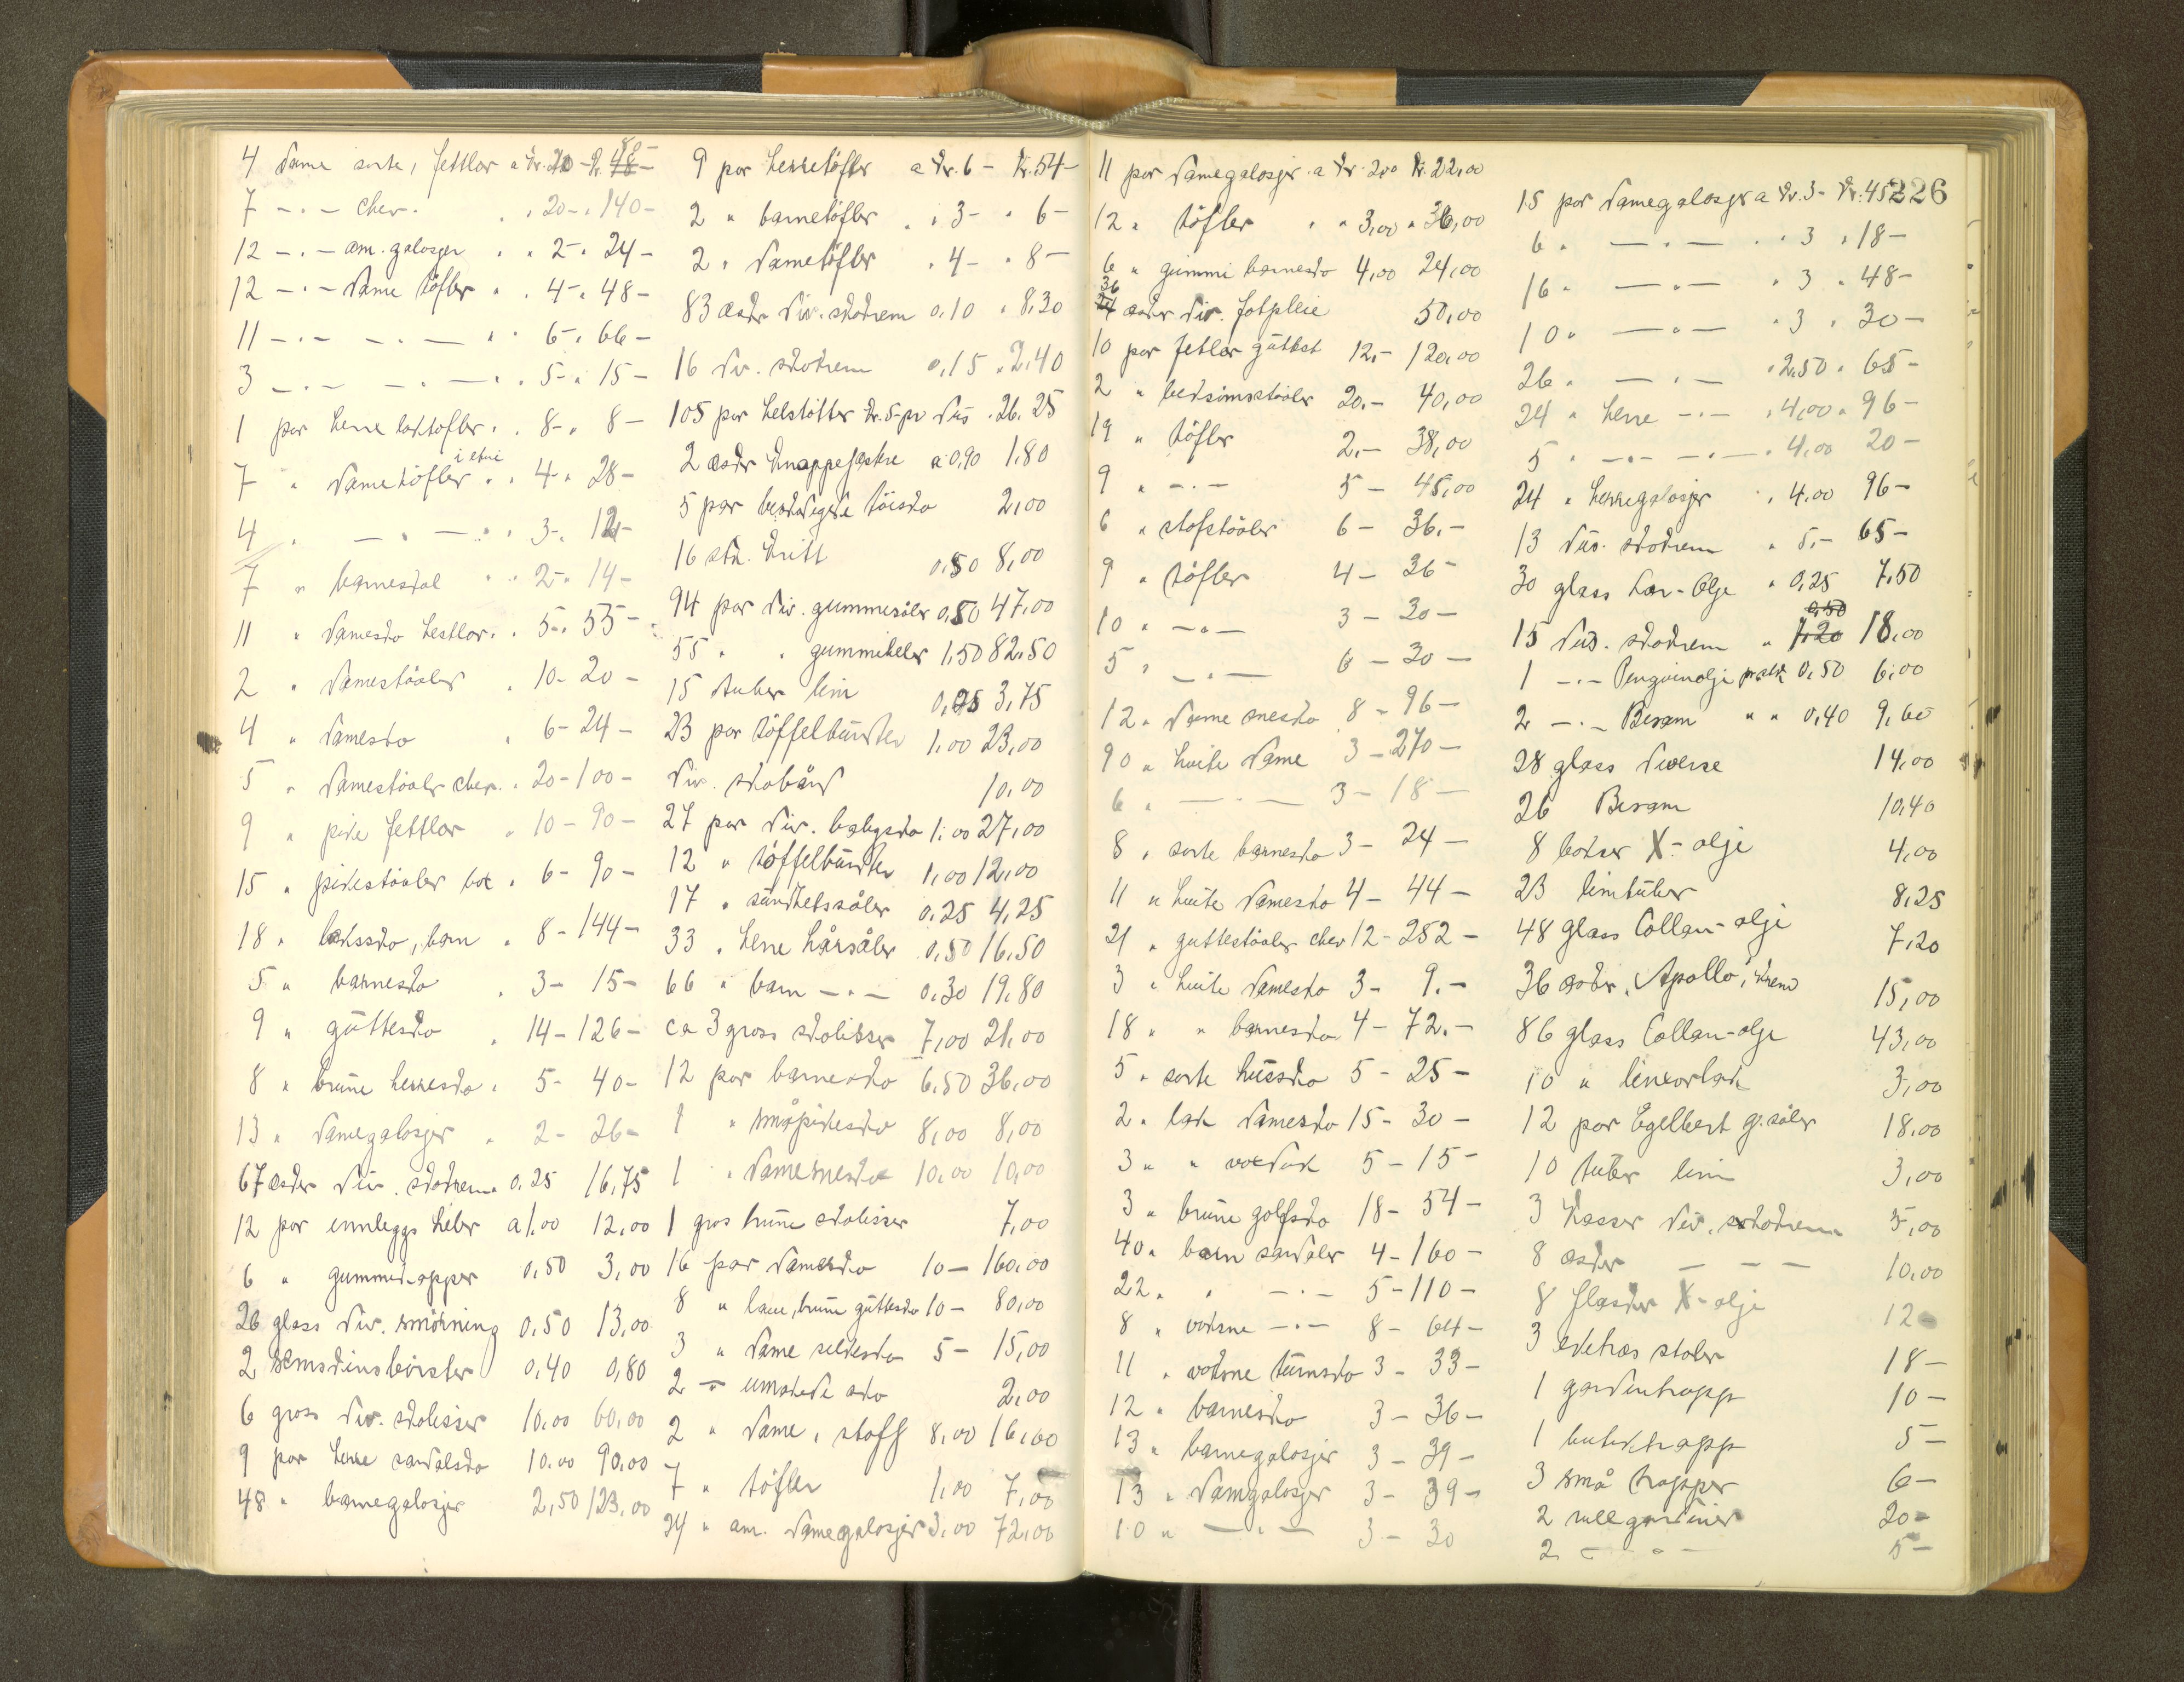 4 dame sorte, fettlær a kr. 20 - kr. 80-
7 -"- chev. " " 20- " 140-
12 -"- am. galosjer " " 2- " 24-
12 -"- dame töfler " " 4- " 48-
11 -"- -"- " " 6- " 66-
3 -"- -"- " " 5- " 15-
1 par herre laktöfler " " 8- " 8-
7 " dametöfler i etui " " 4- " 28-
4 " -"- " " 3- " 12-
7 " barneskal " " 2- " 14-
11 " damesko hestlær " " 5- " 55-
2 " damestövler " 10- 20-
4 " damesko " 6- 24-
5 " damestövler chev. " 20- 100-
9 " pike fettlær " 10- 90-
15 " pikestövler box " 6- 90-
18 " laksko, barn " 8- 144-
5 " barnesko " 3- 15-
9 " guttesko " 14- 126-
8 " brune herresko " 5- 40-
13 " damegalosjer " 2- 26-
67 esker div. skokrem " 0,25 16,75
12 par innleggs heler a 1,00 12,00
6 " gummikapper 0,50 3,00
26 glass div. smörning 0,50 13,00
2 semskinsbörster 0,40 0,80
6 gross div. skolisser 10,00 60,00
9 par herre sandalsko 10.00 90,00
48 " barnegalosjer 2,50 123,00
9 par herretöfler a kr. 6- kr. 54-
2 " barnetöfler " " 3- " 6-
2 " dametöfler " 4- " 8-
83 esker div. skokrem 0,10 " 8,30
16 div. skokrem 0,15 " 2,40
105 par helstötter kr. 5- pr dus " 26.25
2 esker knappefester a 0,90 1,80
5 par beskadigede töisko 2,00
16 stk. kritt 0,50 8,00
94 par div. gummisåler 0,50 47,00
55 " " gummiheler 1,50 82,50
15 tuber lim 0,25 3,75
23 par töffelbunder 1,00 23,00
div. skobånd 10,00
27 par div. belgsko 1,00 27,00
12 " töffelbunder 1,00 12,00
17 " sundhetssåler 0,25 4,25
33 " herre hårsåler 0,50 16,50
66 " barn -"- 0,30 19,80
ca 3 gross skolisser 7,00 21,00
12 par barnesko 6,50 36,00
1 " småpikesko 8,00 8,00
1 " damesnesko 10,00 10,00
1 gros brune skolisser 7,00
16 par damesko 10- 160,00
8 " lave, brune guttesko 10- 80,00
3 " dame silkesko 5- 15,00
2 -"- umakede sko 2,00
2 " dame, stoff 8,00 16,00
7 " töfler 1,00 7,00
24 " am. damegalosjer 3,00 72,00
226
11 par damegalosjer a kr. 2,00 kr. 22,00
12 " töfler " " 3,00 " 36,00
6 " gummi barnesko 4,00 24,00
36 esker div. fotpleie 50,00
10 par fetlær guttest 12,- 120,00
2 " bergsömsstövler 20.- 40,00
19 " töfler 2.- 38,00
9 " -"- 5- 45,00
6 " stofstövler 6- 36.-
9 " töfler 4- 36-
10 " -"- 3- 30-
5 " -"- 6- 30-
12 " dame snesko 8- 96-
90 " hvite dame 3- 270-
6 " -"- 3- 18-
8 " sorte barnesko 3- 24-
11 " hvite damesko 4- 44-
21 " guttestövler chev 12- 252-
3 " hvite damesko 3- 9.-
18 " " barnesko 4- 72.-
5 " sorte hussko 5- 25-
2 " lak damesko 15- 30-
3 " " voxduk 5- 15-
3 " brune golfsko 18- 54-
40 " barn sandaler 4- 160-
22 " " -"- 5- 110-
8 " voksne -"- 8- 64-
11 " voksne turnsko 3- 33-
12 " barnesko 3- 36-
13 " barnegalosjer 3- 39-
13 " damgalosjer 3- 39-
10 " -"- 3- 30
15 par damegalosjer a kr. 3- kr. 45
6 " -"- " " 3 " 18-
16 " -"- " 3 " 48-
10 " -"- " 3 " 30-
26 " -"- " 2,50 " 65-
24 " herre -"- " 4,00 " 96-
5 " -"- -"- " 4,00 20-
24 " herregalosjer " " 4,00 96-
13 dus. skokrem " 5,- 65-
30 glass lær-olje " 0,25 7,50
15 dus. skokrem " 1.20 18,00
1 -"- Penguinolje pr stk 0,50 6,00
2 -"- Beram " " 0,40 9,60
28 glass diverse 14,00
26 Beram 10,40
8 bokser X-olje 4,00
23 limtuber 8,25
48 glass Collan-olje 7,20
36 esker "Apollo" krem 15,00
86 glass Collan-olje 43,00
10 " linkorlak 3,00
12 par Egelbert g. såler 18,00
10 tuber lim 3,00
3 kasser div. skokrem 5,00
8 esker - - - 10,00
8 flasker X-olje 12-
3 eketræs stoler 18-
1 gardintrapp 10-
1 butiktrapp 5-
3 små trapper 6-
2 rullgardiner 20-
2 - " - 5-